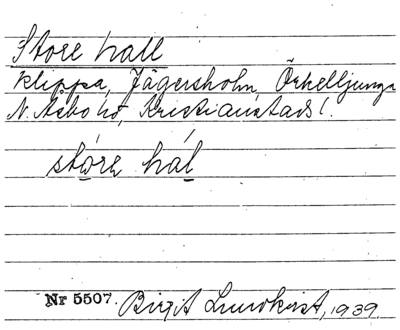 Store hall
Klippa, Jägersholm, Örkelljunga
N. Åsbo hd, Kristianstads l.
stóre hál
Nr 5507. Birgit Lundkvist, 1939.